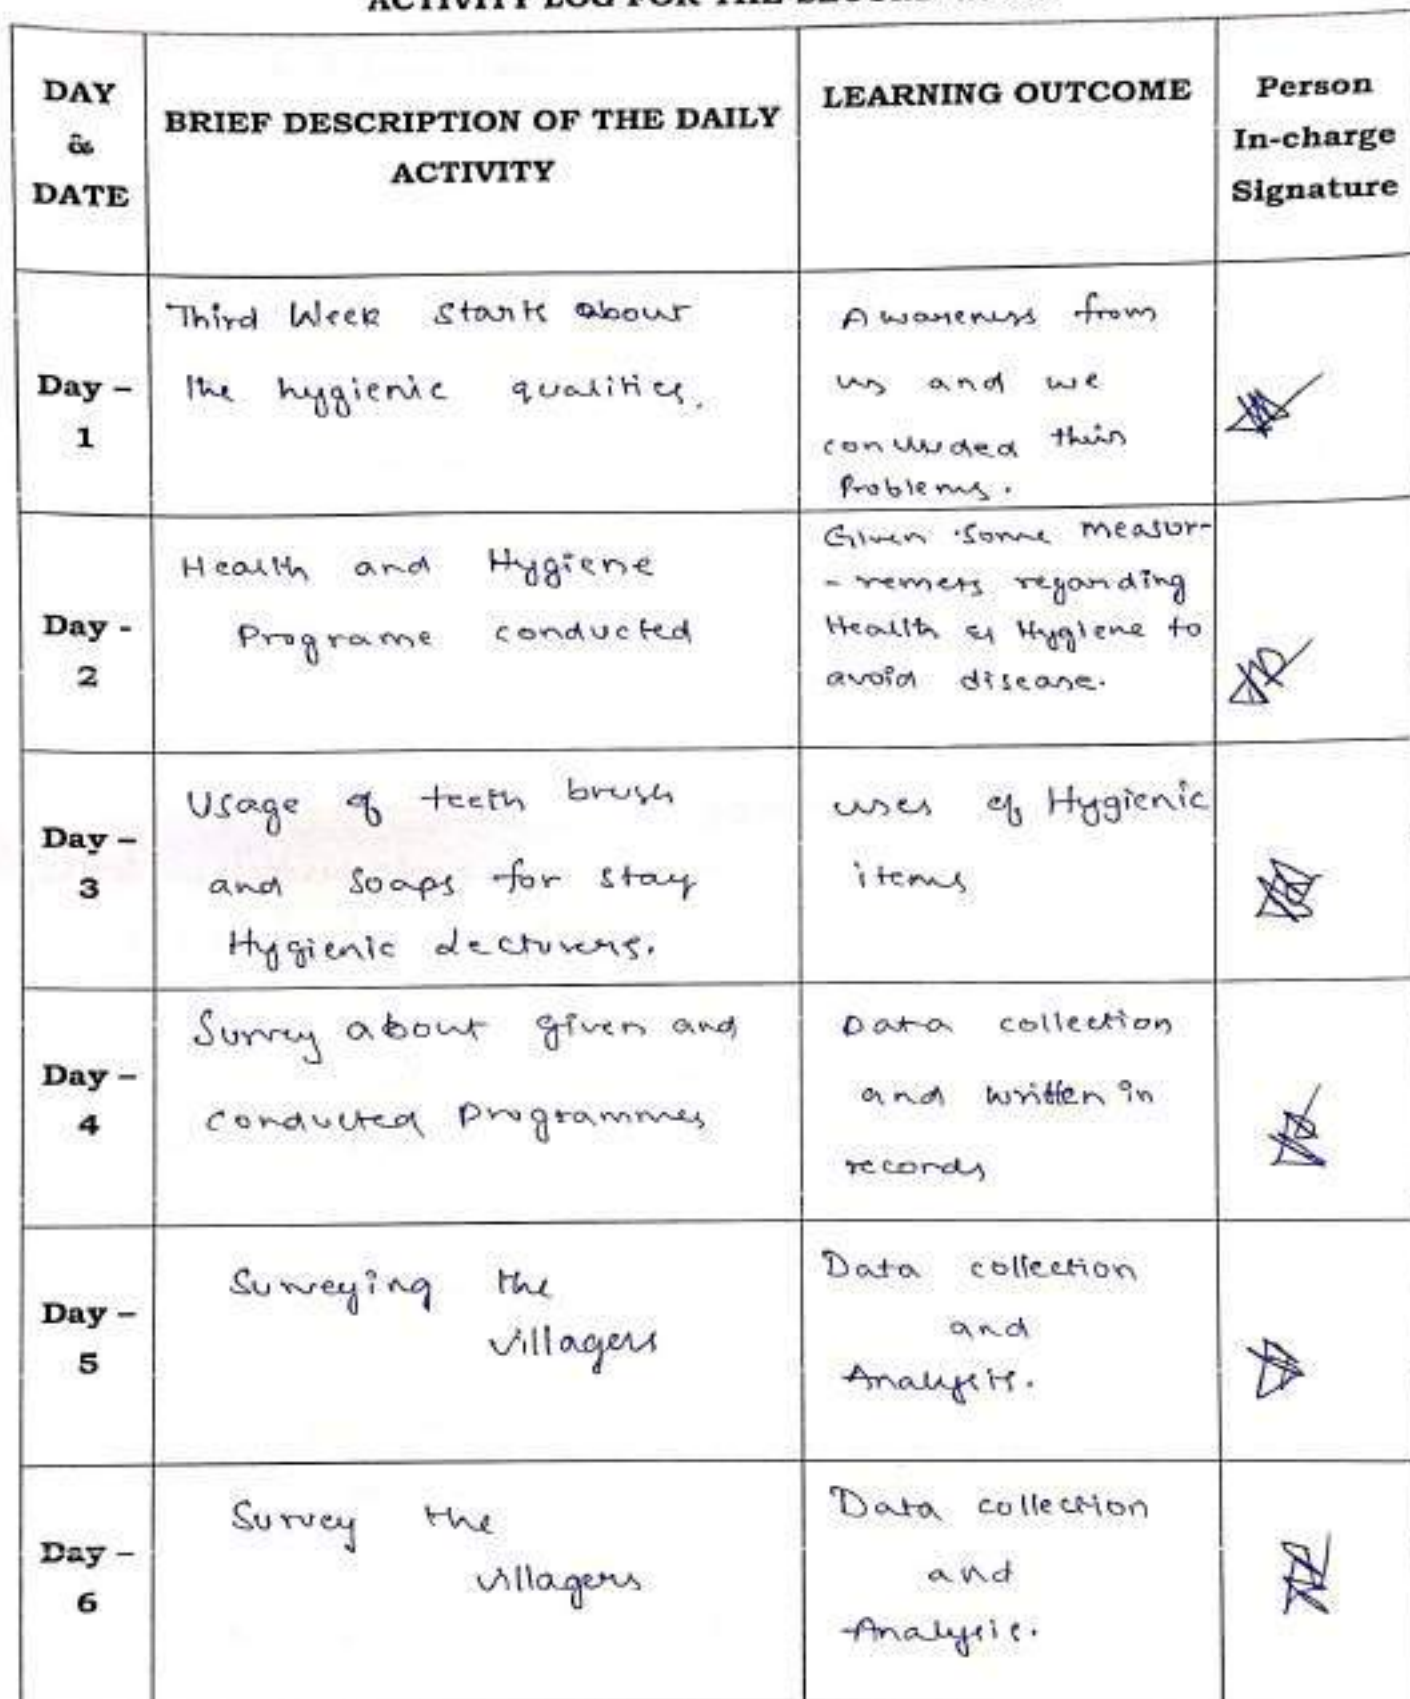 ACTIVITY LOG FOR THE SECOND
DAY
&
DATE
BRIEF DESCRIPTION OF THE DAILY
ACTIVITY
LEARNING OUTCOME
Person
In-charge
Signature
Day –
1
Third Week starts about
the hygienic qualities.
Awareness from
us and we
concluded their
Problems.
Day -
2
Health and Hygiene
Programe conducted
Given some measur-
- remets regarding
Health & Hygiene to
avoid disease.
Day –
3
Usage of teeth brush
and Soaps for stay
Hygienic
uses of Hygienic
items
Day –
4
Survey about given and
conducted programmes
Data collection
and written in
records
Day –
5
Surveying the
villagers
Data collection
and
Analysis.
Day –
6
Survey the
villagers
Data collection
and
Analysis.